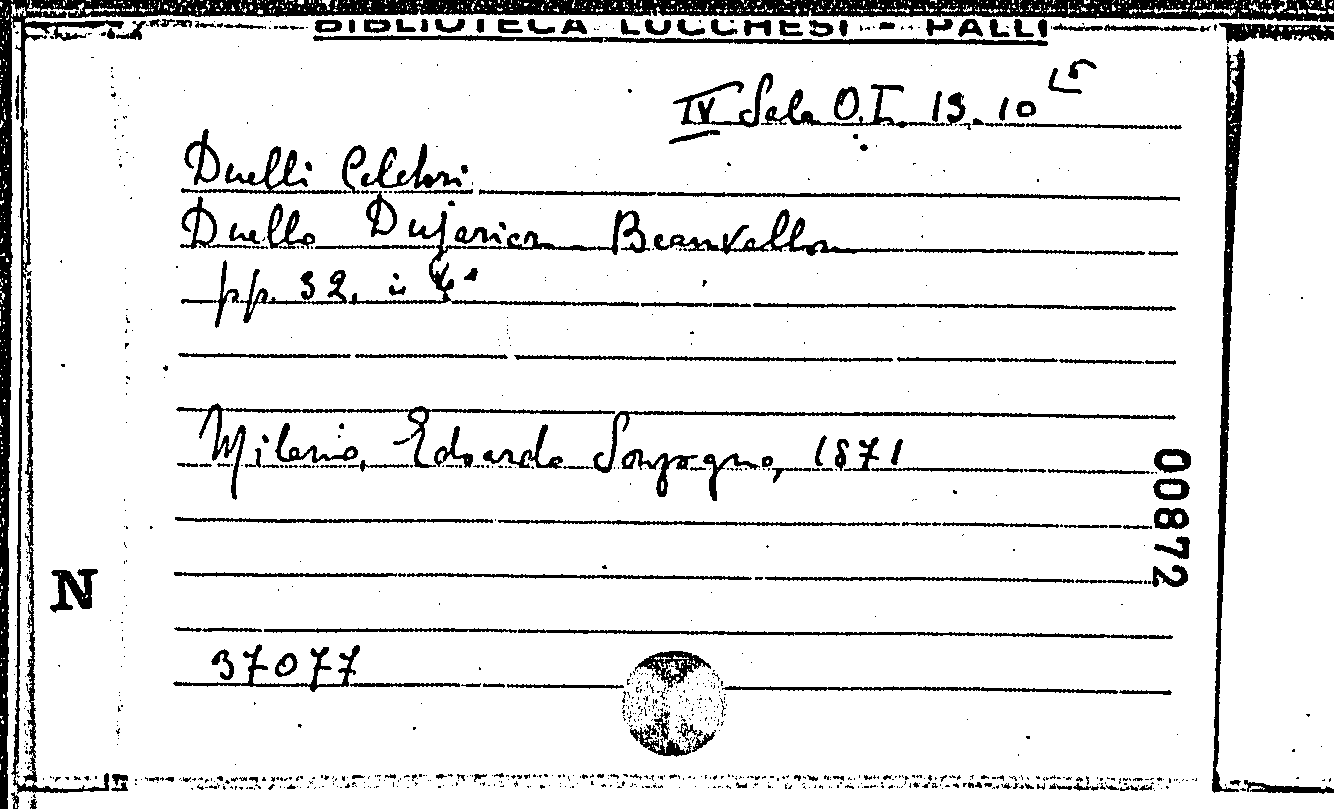 BIBLIOTECA LUCCHESI - PALLI
IV Sala O.I. 13.10
Duelli Celebri
Duello Dujarier Beauvallon
pp. 32. in 4°
Milano, Edoardo Sonzogno, 1871
00872
N
37077